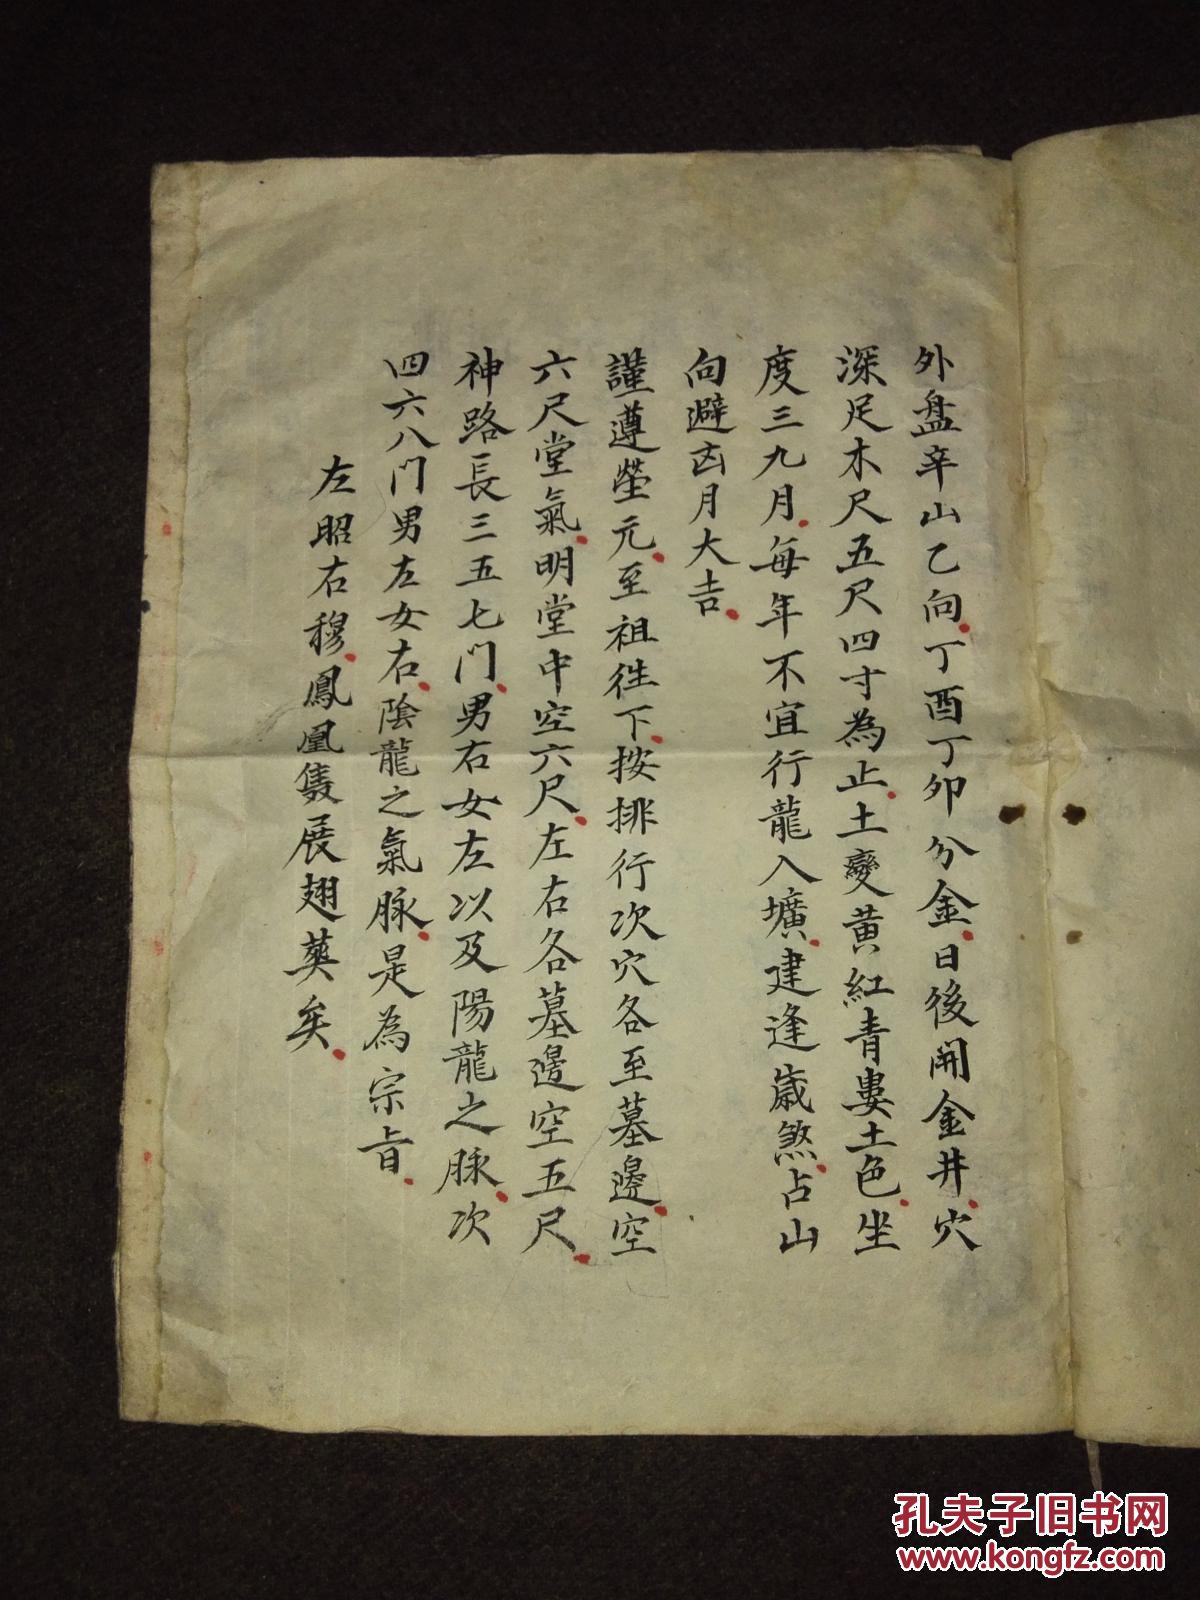 外盘辛山乙向丁酉丁卯分金日後開金井穴
深足木尺五尺四寸為止土變黃紅青婁土色坐
度三九月每年不宜行龍入壙建逢歲煞占山
向避凶月大吉
謹遵塋元至祖徃下按排行次穴各至墓邊空
六尺堂氣明堂中空六尺左右各墓邊空五尺
神路長三五七门男右女左以及陽龍之脉次
四六八门男左女右陰龍之氣脉是為宗旨
左昭右穆鳳凰隻展翅葬矣
孔夫子旧书网
www.kongfz.com